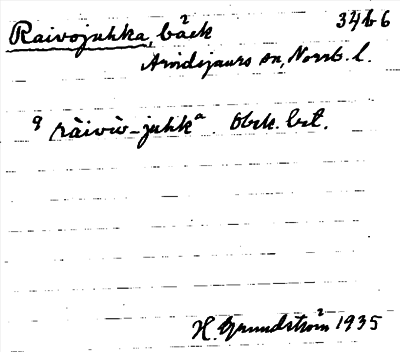 Raivojuhka, bäck 34b6
Arvidsjaurs sn, Norrb. l.
q ràiviv-juhkᵃ. Obek. bet.
H. Grundström 1935